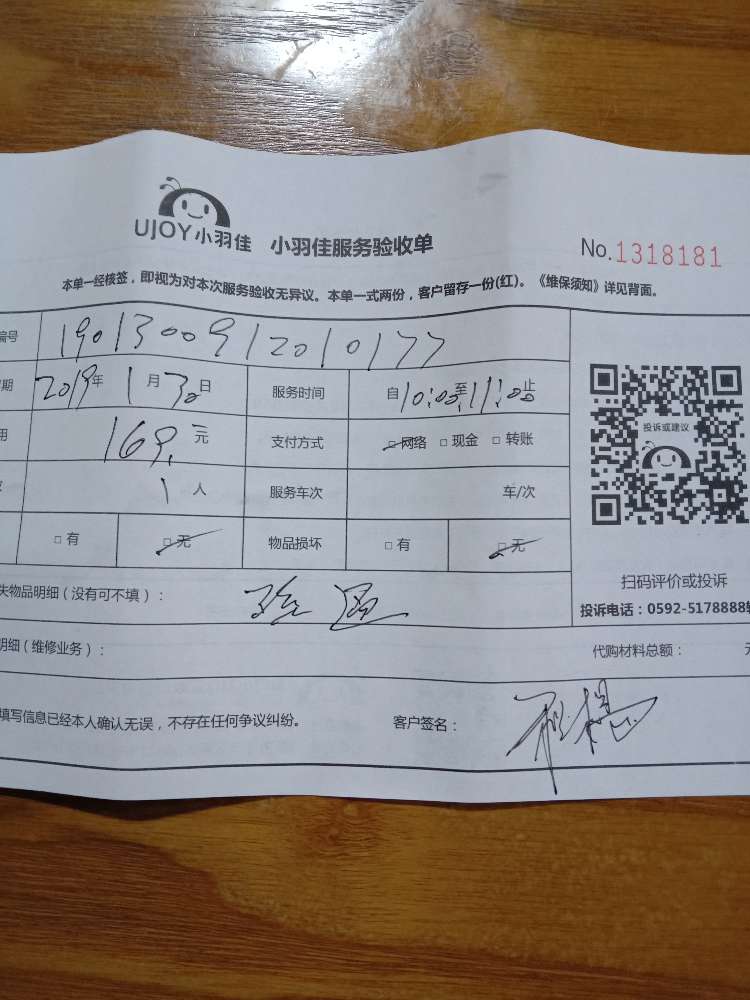 UJOY小羽佳 小羽佳服务验收单 No.1318181
本单一经核签，即视为对本次服务验收无异议。本单一式两份，客户留存一份(红)。《维保须知》详见背面。
编号 1901300912010177
期 2019年1月30日 服务时间 自10:00至11:00止
用 169.元 支付方式 □网络 □现金 □转账
1人 服务车次 车/次
□有 □无 物品损坏 □有 □无
投诉或建议
扫码评价或投诉
失物品明细（没有可不填）：
投诉电话：0592-5178888转
明细（维修业务）： 代购材料总额： 元
填写信息已经本人确认无误，不存在任何争议纠纷。 客户签名：